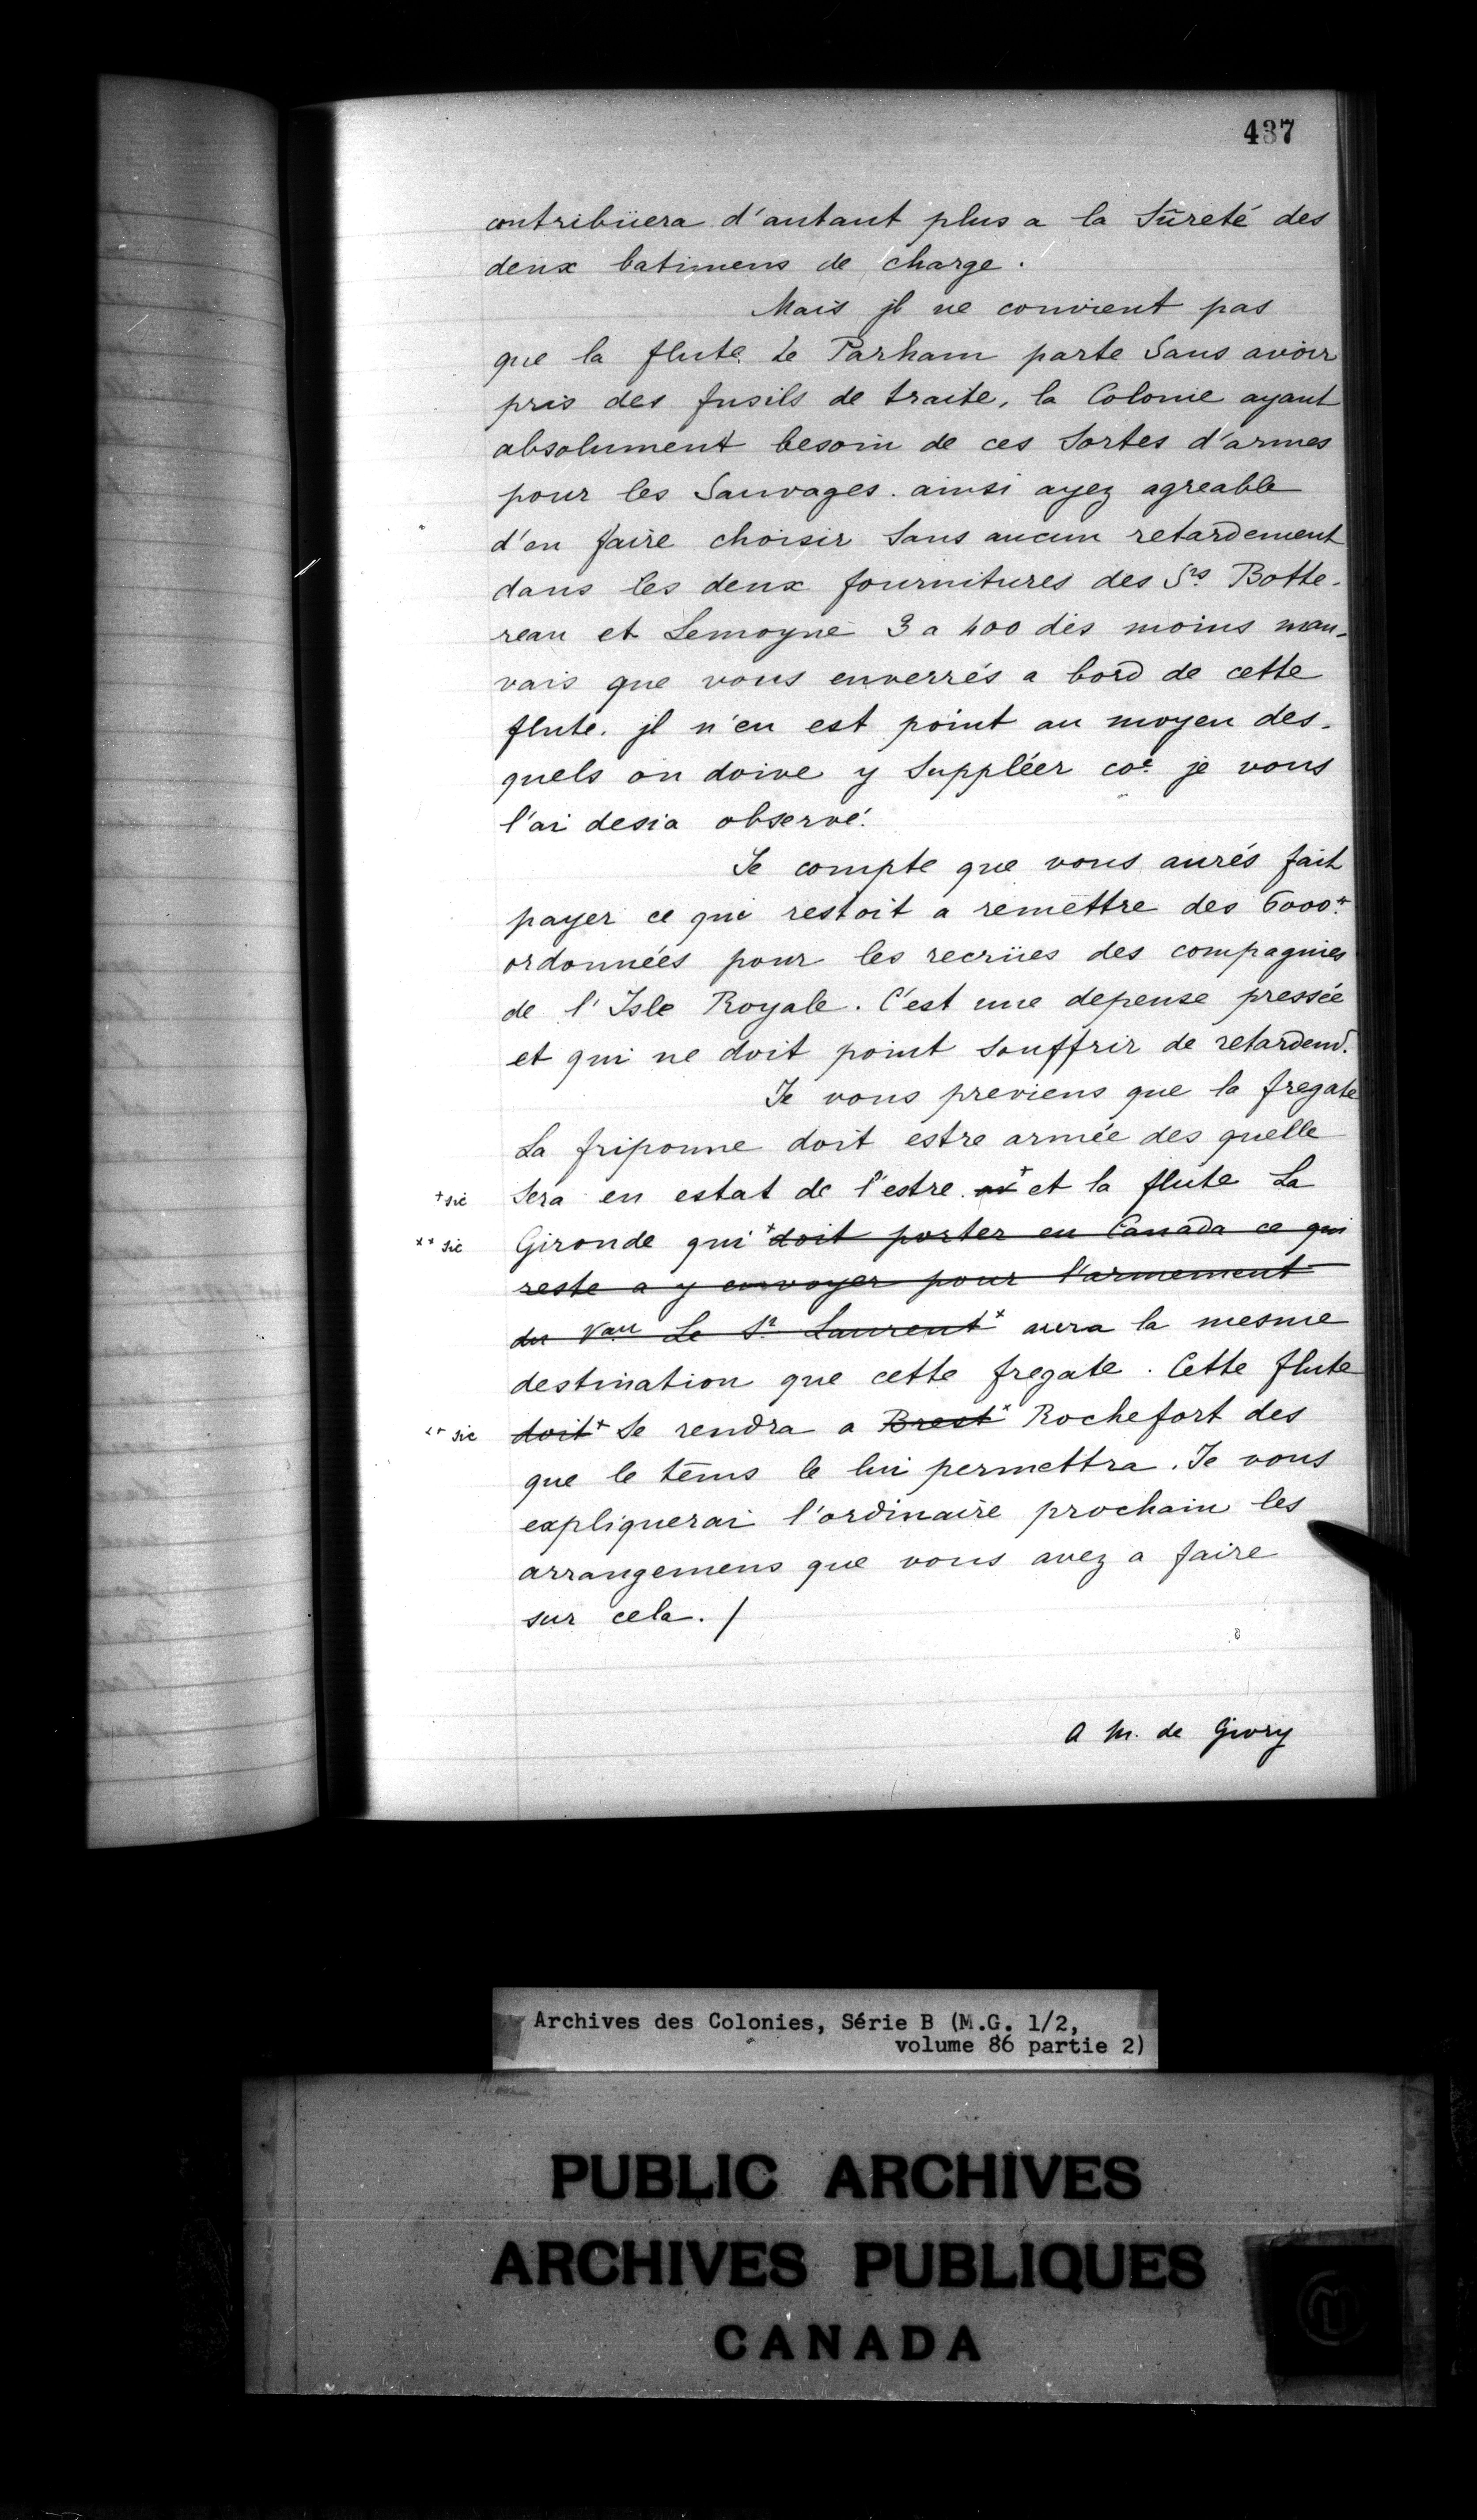 437
contribüera d'autant plus a la Sûreté des
deux batimens de charge.
Mais jl ne convient pas
que la flute Le Parham parte Sans avoir
pris des fusils de traite, la Colonie ayant
absolument besoin de ces Sortes d'armes
pour les Sauvages. ainsi ayez agreable
d'en faire choisir Sans aucun retardement
dans les deux fournitures des Srs Botte-
reau et Lemoyne 3 a 400 des moins mau-
vais que vous enverrés a bord de cette
flute. jl n'en est point au moyen des-
quels on doive y Suppléer coe je vous
l'ai desia observé.
Je compte que vous aurés fait
payer ce qui restoit a remettre des 6000#
ordonnées pour les recrües des compagnies
de l'Isle Royale. C'est une depense pressée
et qui ne doit point Souffrir de retardem.
Je vous previens que la fregate
La friponne doit estre armée des quelle
+ sic Sera en estat de l'estre + et la flute La
++ sic Gironde qui + doit porter en Canada ce qui
reste a y envoyer pour l'armement
du Vau Le St Laurent + aura la mesme
destination que cette fregate. Cette flute
++ sic doit + Se rendra a Brest + Rochefort des
que le tems le lui permettra. Je vous
expliquerai l'ordinaire prochain les
arrangemens que vous avez a faire
sur cela. /
A M. de Givry
Archives des Colonies, Série B (M.G. 1/2,
volume 86 partie 2)
PUBLIC ARCHIVES
ARCHIVES PUBLIQUES
CANADA